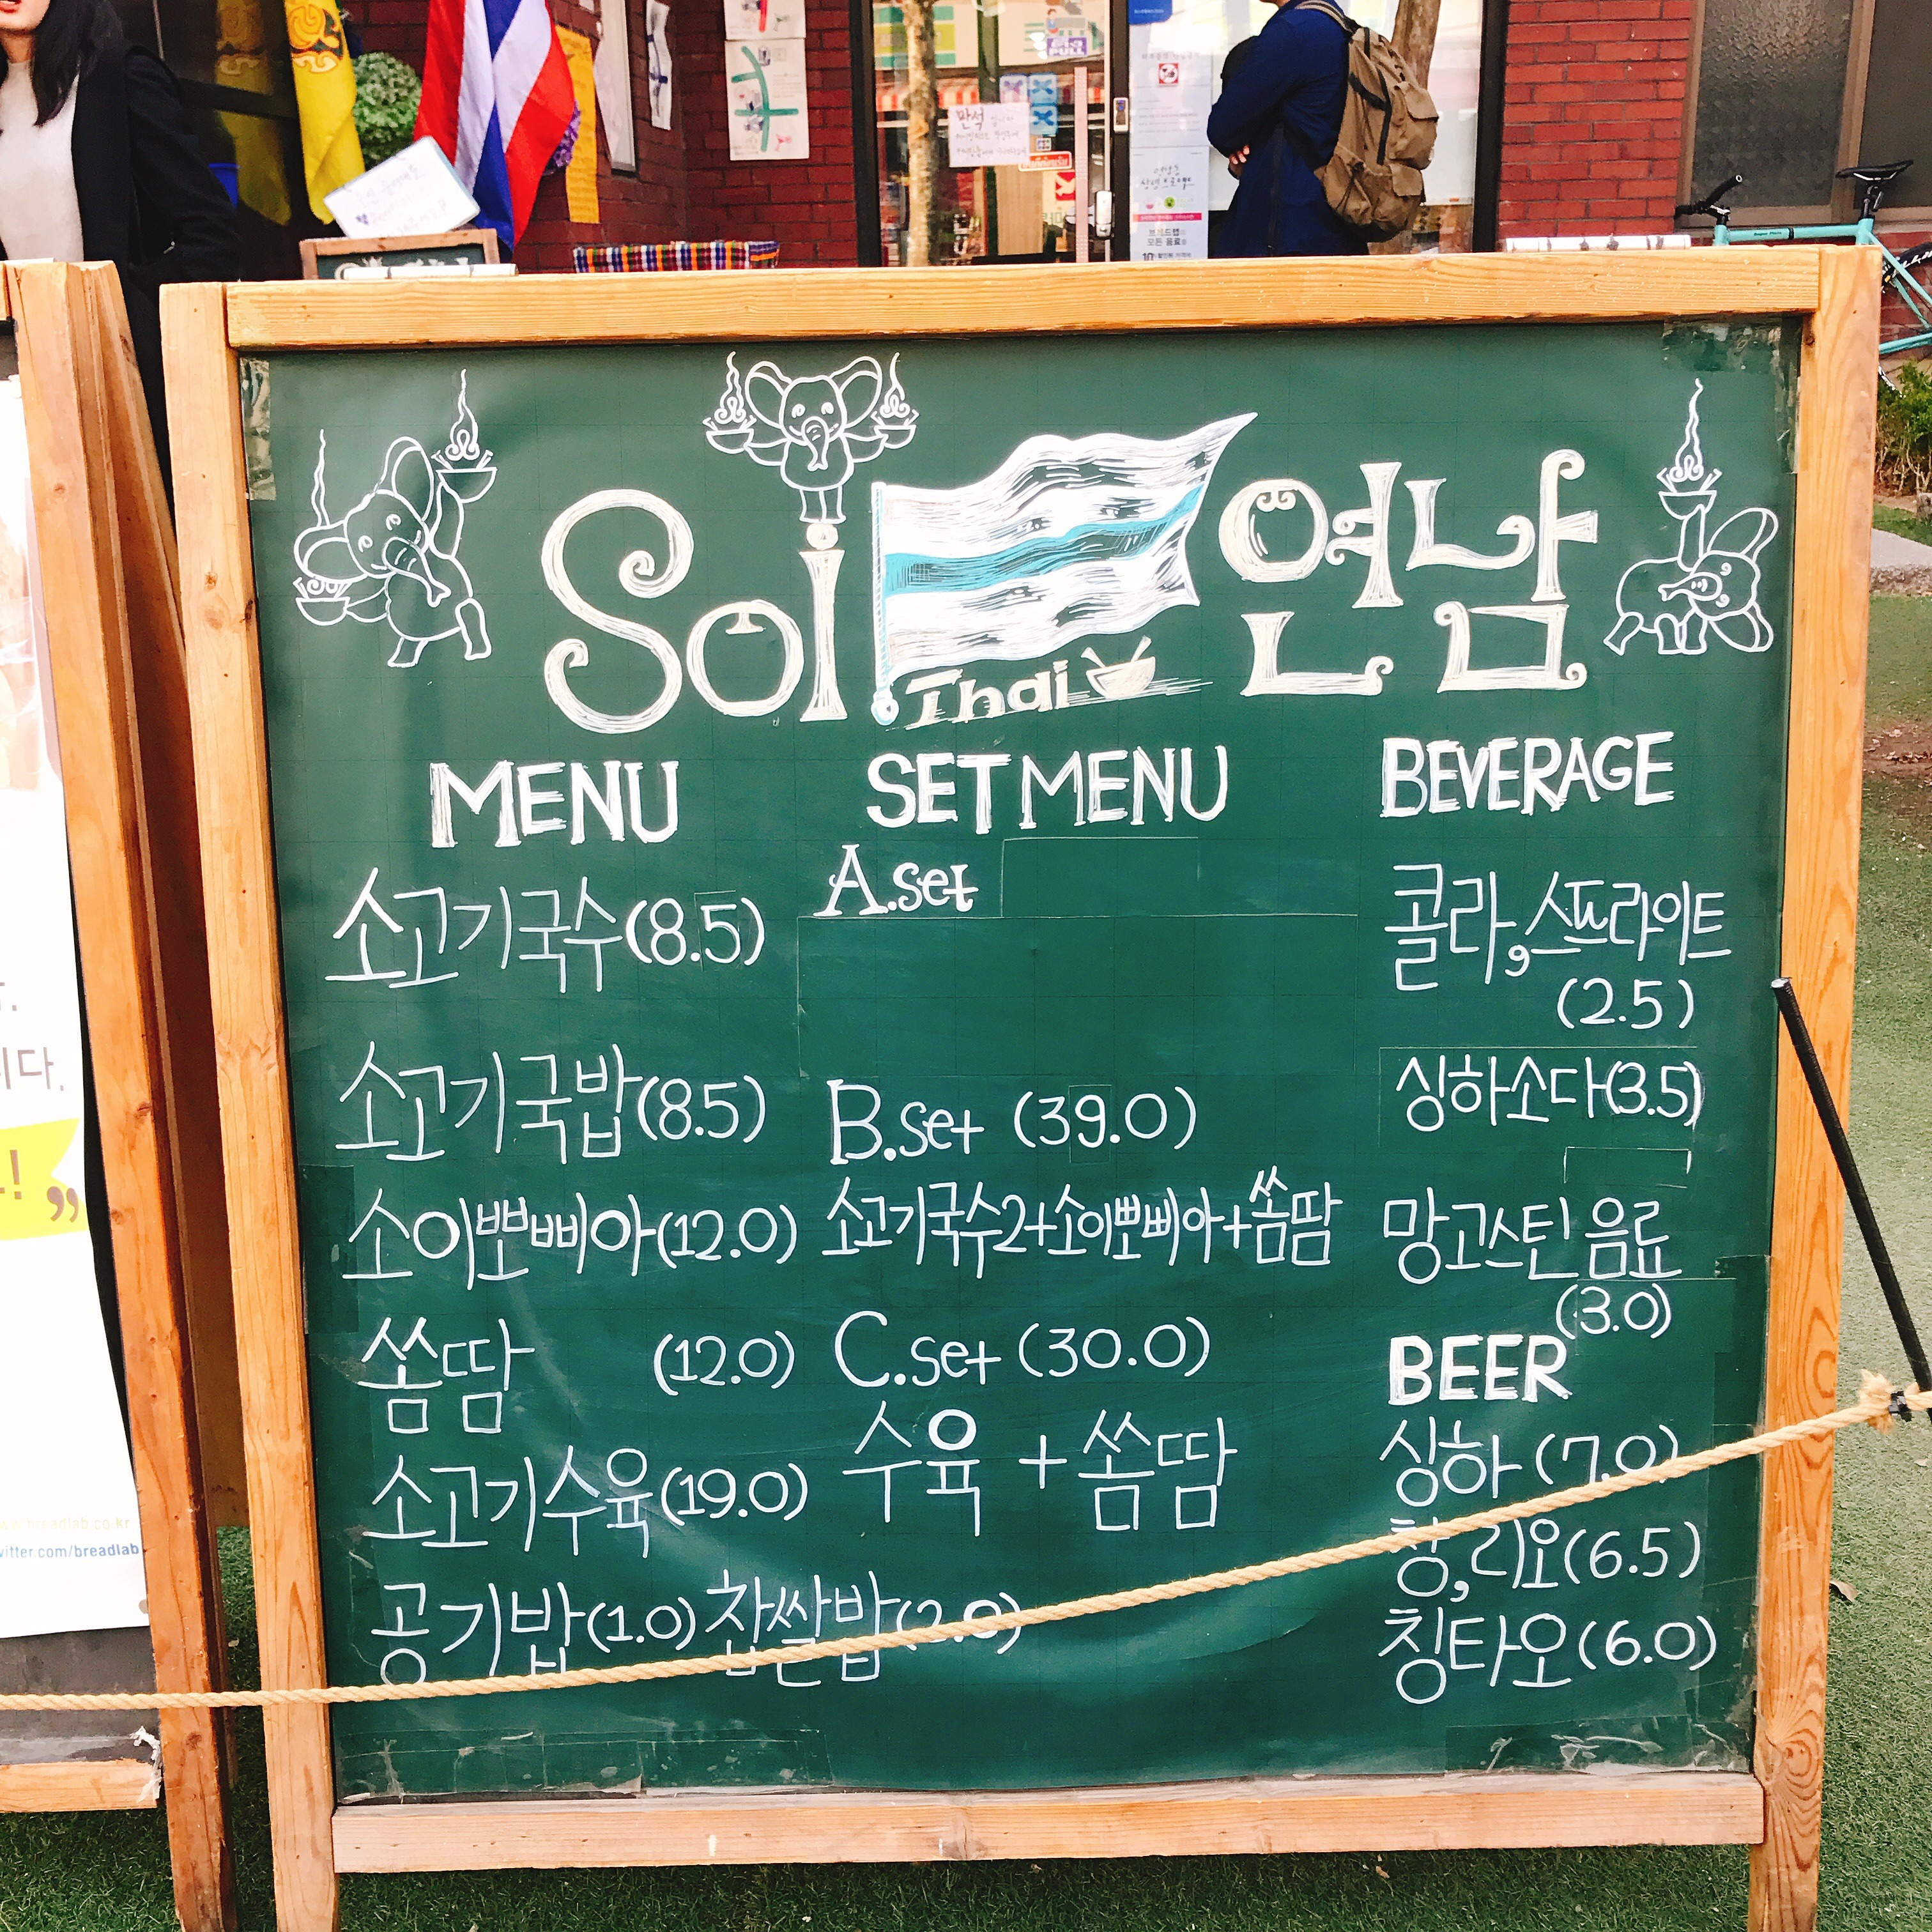 PULL
만석
Soi 연남
Thai
MENU
소고기국수(8.5)
소고기국밥(8.5)
소이뽀삐아(12.0)
쏨땀 (12.0)
소고기수육(19.0)
공기밥(1.0) 찹쌀밥(2.0)
SET MENU
A.set
B.set (39.0)
소고기국수2+소이뽀삐아+쏨땀
C.set (30.0)
수육 + 쏨땀
BEVERAGE
콜라,스프라이트
(2.5)
싱하소다(3.5)
망고스틴 음료
(3.0)
BEER
싱하 (7.0)
창,리오(6.5)
칭타오(6.0)
니다.
!”
www.breadlab.co.kr
twitter.com/breadlab